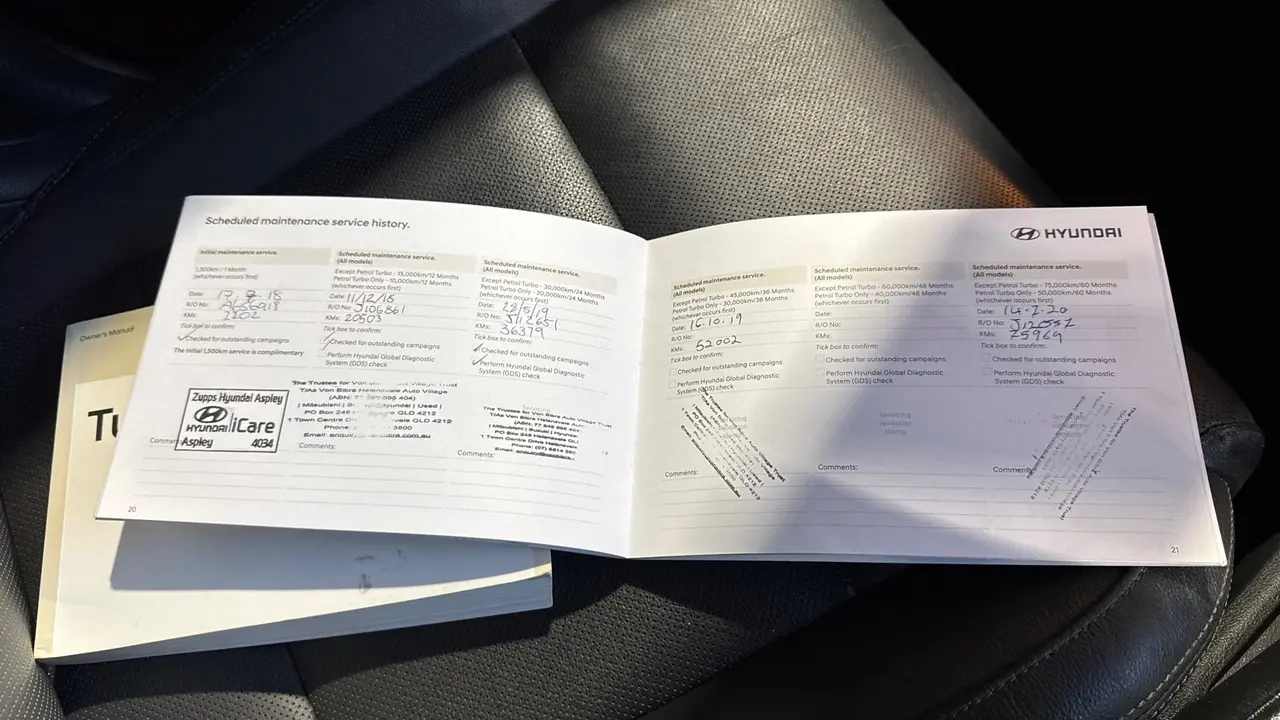 Owner's Manual
Tu
Scheduled maintenance service history.
Initial maintenance service.
1,500km / 1 Month
(whichever occurs first)
Date:
R/O No:
KMs: 1202
Tick box to confirm:
Checked for outstanding campaigns
The initial 1,500km service is complimentary
Zupps Hyundai Aspley
HYUNDAI iCare
Aspley 4034
Scheduled maintenance service.
(All models)
Except Petrol Turbo - 15,000km/12 Months
Petrol Turbo Only - 10,000km/12 Months
(whichever occurs first)
Date:
R/O No: J106861
KMs: 20503
Tick box to confirm:
Checked for outstanding campaigns
Perform Hyundai Global Diagnostic
System (GDS) check
The Trustee for Von Village Trust
T/As Von Bibra Helensvale Auto Village
| Mitsubishi | Hyundai | Used |
PO Box 248 QLD 4212
1 Town Centre QLD 4212
Phone: 3800
Comments:
Scheduled maintenance service.
(All models)
Except Petrol Turbo - 30,000km/24 Months
Petrol Turbo Only - 20,000km/24 Months
(whichever occurs first)
Date: 28/5/19
R/O No:
KMs: 36379
Tick box to confirm:
Checked for outstanding campaigns
Perform Hyundai Global Diagnostic
System (GDS) check
The Trustee for Von Bibra Auto Village Trust
T/As Von Bibra Helensvale Auto Village
| Mitsubishi | Suzuki | Hyundai |
PO Box 248 Helensvale QLD
1 Town Centre Drive Helensvale
Comments:
20
HYUNDAI
Scheduled maintenance service.
(All models)
Except Petrol Turbo - 45,000km/36 Months
Petrol Turbo Only - 30,000km/36 Months
(whichever occurs first)
Date: 16.10.19
R/O No:
KMs: 52002
Tick box to confirm:
Checked for outstanding campaigns
Perform Hyundai Global Diagnostic
System (GDS) check
Comments:
Scheduled maintenance service.
(All models)
Except Petrol Turbo - 60,000km/48 Months
Petrol Turbo Only - 40,000km/48 Months
(whichever occurs first)
Date:
R/O No:
KMs:
Tick box to confirm:
Checked for outstanding campaigns
Perform Hyundai Global Diagnostic
System (GDS) check
Servicing
stamp
Comments:
Scheduled maintenance service.
(All models)
Except Petrol Turbo - 75,000km/60 Months
Petrol Turbo Only - 50,000km/60 Months
(whichever occurs first)
Date: 14.7.20
R/O No:
KMs: 75969
Tick box to confirm:
Checked for outstanding campaigns
Perform Hyundai Global Diagnostic
System (GDS) check
21